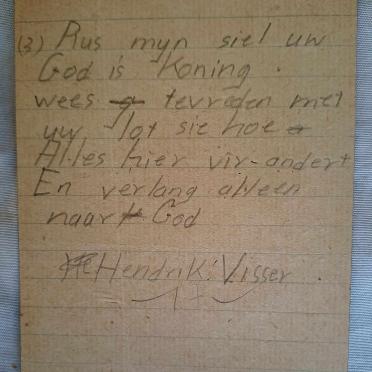 (3) Rus myn siel uw
God is Koning
wees tevreden met
uw lot sie hoe
Alles hier vir-andert
En verlang alleen
naar God
Hendrik Visser